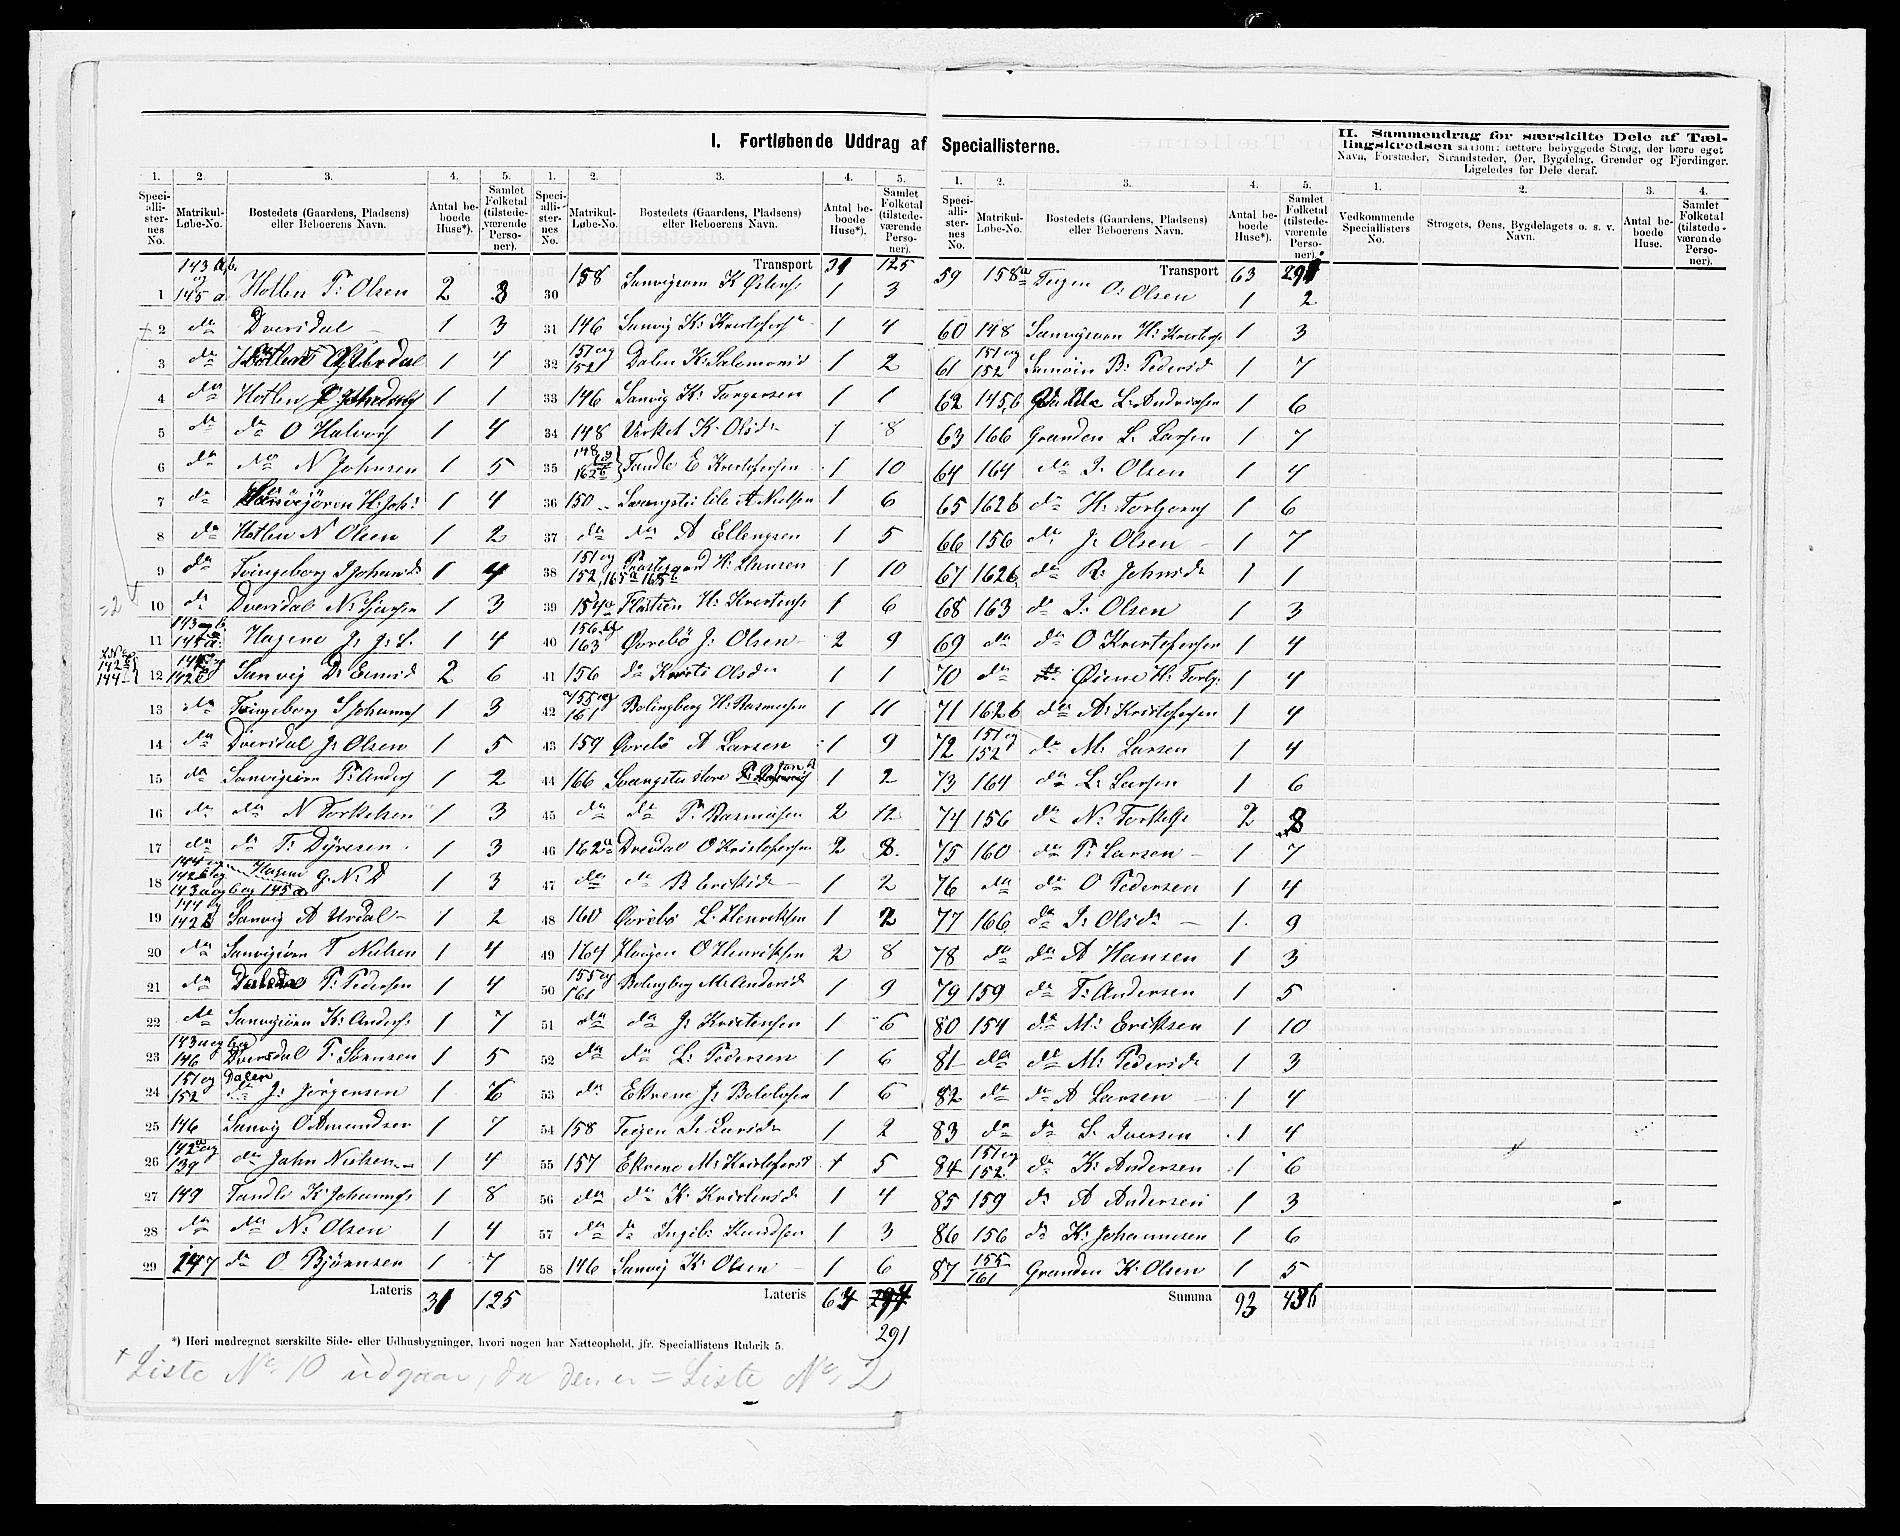 I. Fortløbende Uddrag af Speciallisterne.
II. Sammendrag for særskilte Dele af Tællingskredsen saasom: tættere bebyggede Strøg, der bære eget Navn, Forstæder, Strandsteder, Øer, Bygdelag, Grender og Fjerdinger. Ligeledes for Dele deraf.
1. Speciallisternes No. 2. Matrikul-Løbe-No. 3. Bostedets (Gaardens, Pladsens) eller Beboerens Navn. 4. Antal beboede Huse*). 5. Samlet Folketal (tilstedeværende Personer).
1 143 a, b og 145 a Hotlen T: Olsen 2 3
2 do Dversdal 1 3
3 do 1 4
4 do Hotlen 1 1
5 do do O Halvors 1 4
6 do do N Johnsen 1 5
7 do H: Joh: 1 4
8 do Hotlen N Olsen 1 2
9 do Tvingeborg 1 4
=2 10 do Dversdal N: 1 3
11 Hagene J: J: S. 1 4
142 144 12 Sanvig D: 2 6
13 do Tvingeborg S Johanns 1 3
14 do Dversdal J: Olsen 1 5
15 do Sanvigsørn T: Anders 1 2
16 do do N Torkelsen 1 3
17 do do T: Dyresen 1 3
18 143 a og b og 145 a Hagene G: N: D 1 3
19 144 og 142 b Sanvig A Urdal 1 2
20 do Sanvigsørn T Nielsen 1 4
21 do T: Pedersen 1 4
22 do Sanvigsørn K: Anders: 1 7
23 143 a og b og 146 Dversdal T: Sørnsen 1 5
24 151 og 152 Dalen do J: Jørgensen 1 6
25 146 Sanvig O Amundsen 1 7
26 142 a og 139 do John Nielsen 1 4
27 149 Tandle K: Johannes 1 8
28 do do N: Olsen 1 4
29 147 do O Bjørnsen 1 7
Lateris 31 125
Transport 31 125
30 158 Sanvigsørn K Østens 1 3
31 146 Sanvig K: Kristofers 1 4
32 151 og 152 Dalen K: Salomonsd 1 2
33 146 Sanvig K: Torgersen 1 1
34 148 Verket K: Olsdr 1 8
35 148 og 162 b Tandle E Kristofersen 1 10
36 150 Svangstu lile A Nielsen 1 6
37 do do A Ellengsen 1 5
38 151 og 152, 165 a 165 b Prestegaard H: Hansen 1 10
39 154 H: Kristens 1 6
40 156 og 163 Øvrebö J: Olsen 2 9
41 156 do Kristi Olsdr 1 1
42 155 og 161 Bolingberg H: Rasmusen 1 11
43 159 Øvrebö A Larsen 1 9
44 166 Svangstu store 1 2
45 do do T: Rasmusen 2 12
46 162 a Drevdal O Kristofersen 2 8
47 do do B Eriksd 1 2
48 160 Øvrebö L: Henriksen 1 2
49 164 Haugen O Henriksen 2 8
50 155 og 161 Bolingberg M: Andersd 1 9
51 do do J: Kristensen 1 6
52 do do L: Pedersen 1 6
53 do Ekrene J: 1 6
54 158 Teigen L: Larsdr 1 2
55 157 Ekrene M: Kristofersd 1 5
56 do do K: Kristensd 1 4
57 do do Ingeb: Knudsen 1 3
58 146 Sanvig K: Olsen 1 6
Lateris 64 294
291
Transport 63 291
59 158 a Teigen O: Olsen 1 2
60 148 Sanvigsørn H: Kristofs 1 3
61 151 og 152 B: Pedersd 1 7
62 145 b L: Andreasen 1 6
63 166 Granden L: Larsen 1 7
64 164 do I: Olsen 1 4
65 162 b do H: Torbjørns 1 6
66 156 do J: Olsen 1 7
67 162 b do R: Johnsd 1 1
68 163 do I: Olsen 1 3
69 do do O Kristofersen 1 4
70 do Øiene H: Torbj: 1 4
71 162 b do A: Kristofersen 1 4
72 151 og 152 do M: Larsen 1 4
73 164 do L: Larsen 1 6
74 156 do N: Torkels 2 8
75 160 do T: Larsen 1 7
76 do do O Pedersen 1 4
77 166 do I: Olsdr 1 9
78 do do A Hansen 1 3
79 159 do T: Andersen 1 5
80 154 do M: Eriksen 1 10
81 do do M: Pedersdr 1 3
82 do do A Larsen 1 4
83 do do S. Iversen 1 4
84 151 og 152 do K: Andersen 1 6
85 159 do A Andersen 1 3
86 156 do K: Johannesen 1 6
87 155 161 Granden K: Olsen 1 5
Summa 93 436
1. Vedkommende Speciallisters No. 2. Strøgets, Øens, Bygdelagets o. s. v. Navn. 3. Antal beboede Huse. 4. Samlet Folketal (tilstedeværende Personer).
*) Heri medregnet særskilte Side- eller Udhusbygninger, hvori nogen har Natteophold, jfr. Speciallistens Rubrik 5.
+ Liste No. 10 udgaar, da den er = Liste No. 2